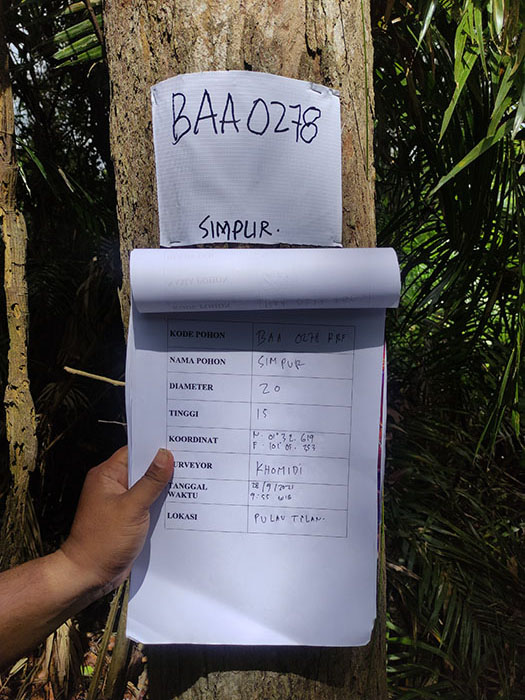 BAA0278
SIMPUR.
NAMA POHON
KODE POHON BAA 0278 RRF
NAMA POHON SIMPUR
DIAMETER 20
TINGGI 15
KOORDINAT N. 01° 32. 619
E. 101° 05. 253
URVEYOR KHOMIDI
TANGGAL 28/9/2021
WAKTU 9:55 WIB
LOKASI PULAU TILAN.